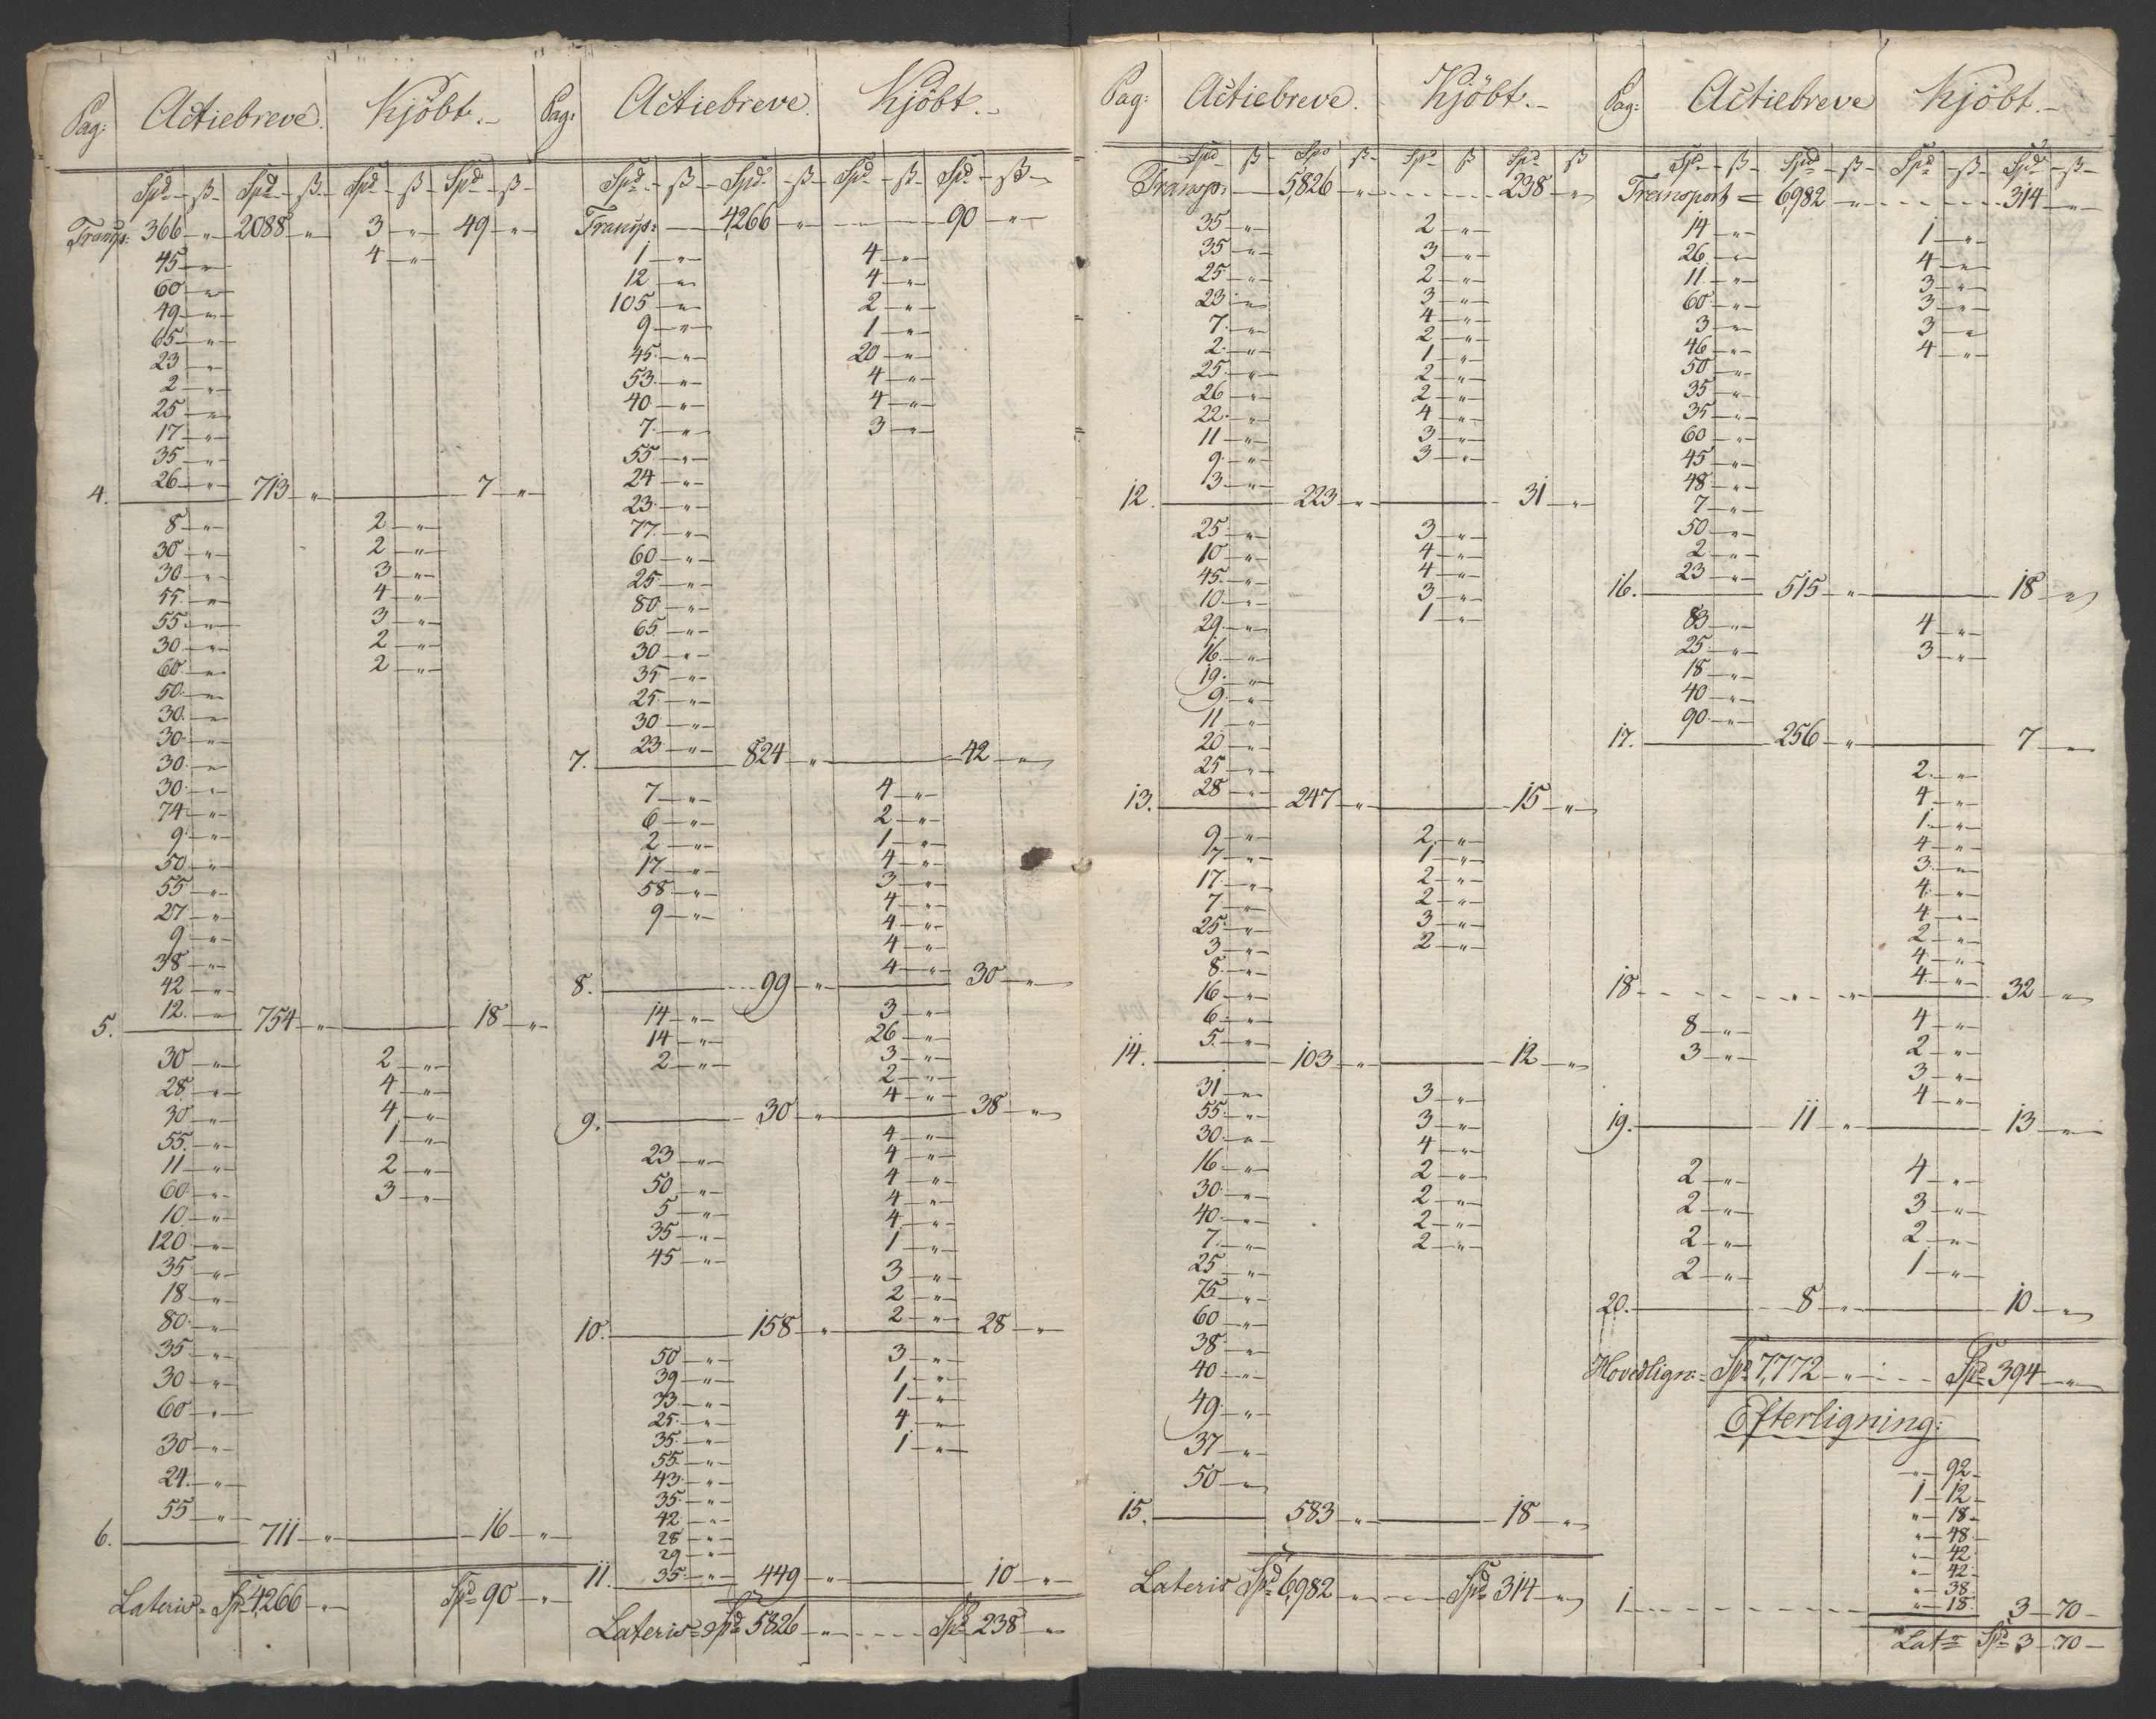 Pag: Actiebreve. Kjöbt.
Spd ß Spd ß Spd ß Spd ß
Transp: 366 " 2088 " 3 " 49 "
45 " 4 "
60 "
49 "
65 "
23 "
2 "
25 "
17 "
35 "
26 "
4. 713 " 7 "
8 " 2 "
30 " 2 "
30 " 3 "
55 " 4 "
55 " 3 "
30 " 2 "
60 " 2 "
50 "
30 "
30 "
30 "
30 "
74 "
9 "
50 "
55 "
27 "
9 "
38 "
42 "
12 "
5. 754 " 18 "
30 " 2 "
28 " 4 "
30 " 4 "
55 " 1 "
11 " 2 "
60 " 3 "
10 "
120 "
35 "
18 "
80 "
35 "
30 "
60 "
30 "
24 "
55 "
6. 711 " 16 "
Lateris = Spd 4,266 " Spd 90 "
Pag: Actiebreve Kjöbt.
Spd ß Spd ß Spd ß Spd ß
Transp: 4,266 " 90 "
1 " 4 "
12 " 4 "
105 " 2 "
9 " 1 "
45 " 20 "
53 " 4 "
40 " 4 "
7 " 3 "
55 "
24 "
23 "
77 "
60 "
25 "
80 "
65 "
30 "
35 "
25 "
30 "
23 "
7. 824 " 42 "
7 " 4 "
6 " 2 "
2 " 1 "
17 " 4 "
58 " 3 "
9 " 4 "
4 "
4 "
4 "
8. 99 " 30 "
14 " 3 "
14 " 26 "
2 " 3 "
2 "
4 "
9. 30 " 38 "
4 "
23 " 4 "
50 " 4 "
5 " 4 "
35 " 4 "
45 " 1 "
3 "
2 "
2 "
10. 158 " 28 "
50 " 3 "
39 " 1 "
33 " 1 "
25 " 4 "
35 " 1 "
55 "
43 "
35 "
42 "
28 "
29 "
35 "
11. 449 " 10 "
Lateris = Spd 5826 " Spd 238 "
Pag: Actiebreve. Kjöbt.
Spd ß Spd ß Spd ß Spd ß
Transp: 5,826 " 238 "
35 " 2 "
35 " 3 "
25 " 2 "
23 " 3 "
7 " 4 "
2 " 2 "
25 " 1 "
26 " 2 "
22 " 2 "
11 " 4 "
9 " 3 "
3 " 3 "
12. 223 " 31 "
25 " 3 "
10 " 4 "
45 " 4 "
10 " 3 "
29 " 1 "
16 "
19 "
9 "
11 "
20 "
25 "
28 "
13. 247 " 15 "
9 " 2 "
7 " 1 "
17 " 2 "
7 " 2 "
25 " 3 "
3 " 2 "
8 "
16 "
6 "
5 "
14. 103 " 12 "
31 " 3 "
55 " 3 "
30 " 4 "
16 " 2 "
30 " 2 "
40 " 2 "
7 " 2 "
25 "
75 "
60 "
38 "
40 "
49 "
37 "
50 "
15. 583 " 18 "
Lateris Spd 6,982 " Spd 314 "
Pag: Actiebreve Kjöbt.
Spd ß Spd ß Spd ß Spd ß
Transport = 6,982 " 314 "
14 " 1 "
26 " 4 "
11 " 3 "
60 " 3 "
3 " 3 "
46 " 4 "
50 "
35 "
35 "
60 "
45 "
48 "
7 "
50 "
2 "
23 "
16. 515 " 18 "
83 " 4 "
25 " 3 "
18 "
40 "
90 "
17. 256 " 7 "
2 "
4 "
1 "
4 "
3 "
4 "
4 "
2 "
4 "
4 "
18. " 32 "
8 " 4 "
3 " 2 "
3 "
4 "
19. 11 " 13 "
2 " 4 "
2 " 3 "
2 " 2 "
2 " 1 "
20. 8 " 10 "
Hovedlign: = Spd 7,772 " Spd 394 "
Efterligning:
" 92
1 12
" 18
" 48
" 42
" 42
" 38
1 " 18 3 70
Lat Spd 3 70